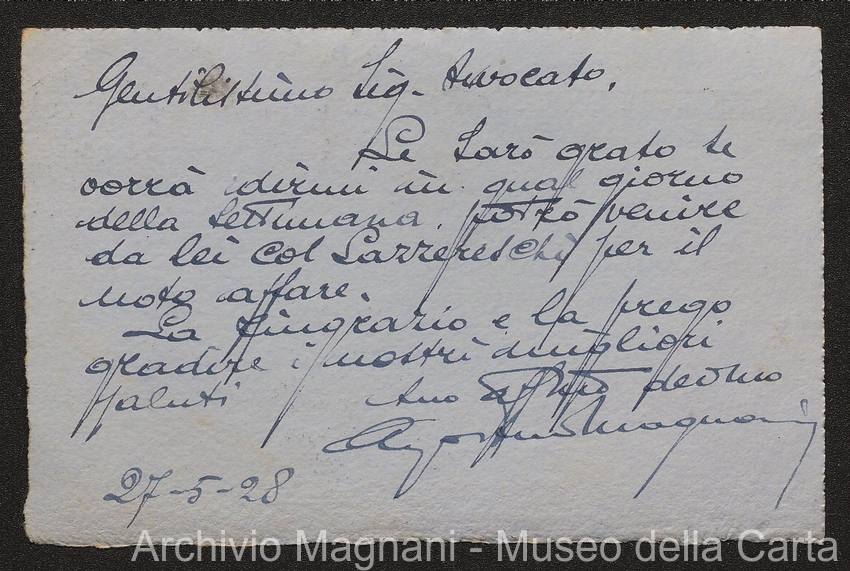 Gentilissimo Sig. Avvocato,
Le sarò grato se
vorrà dirmi in qual giorno
della settimana potrò venire
da lei col Lazzereschi per il
noto affare.
La ringrazio e la prego
gradire i nostri migliori
saluti suo aff.mo dev.mo
Agostino Magnani
27-5-28
Archivio Magnani - Museo della Carta